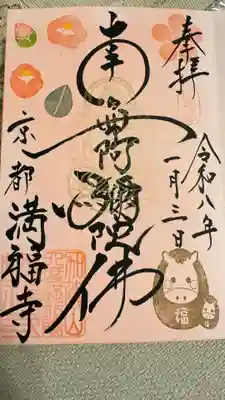 奉拝
令和八年
一月三日
南無阿彌陀佛
京都 満福寺
福